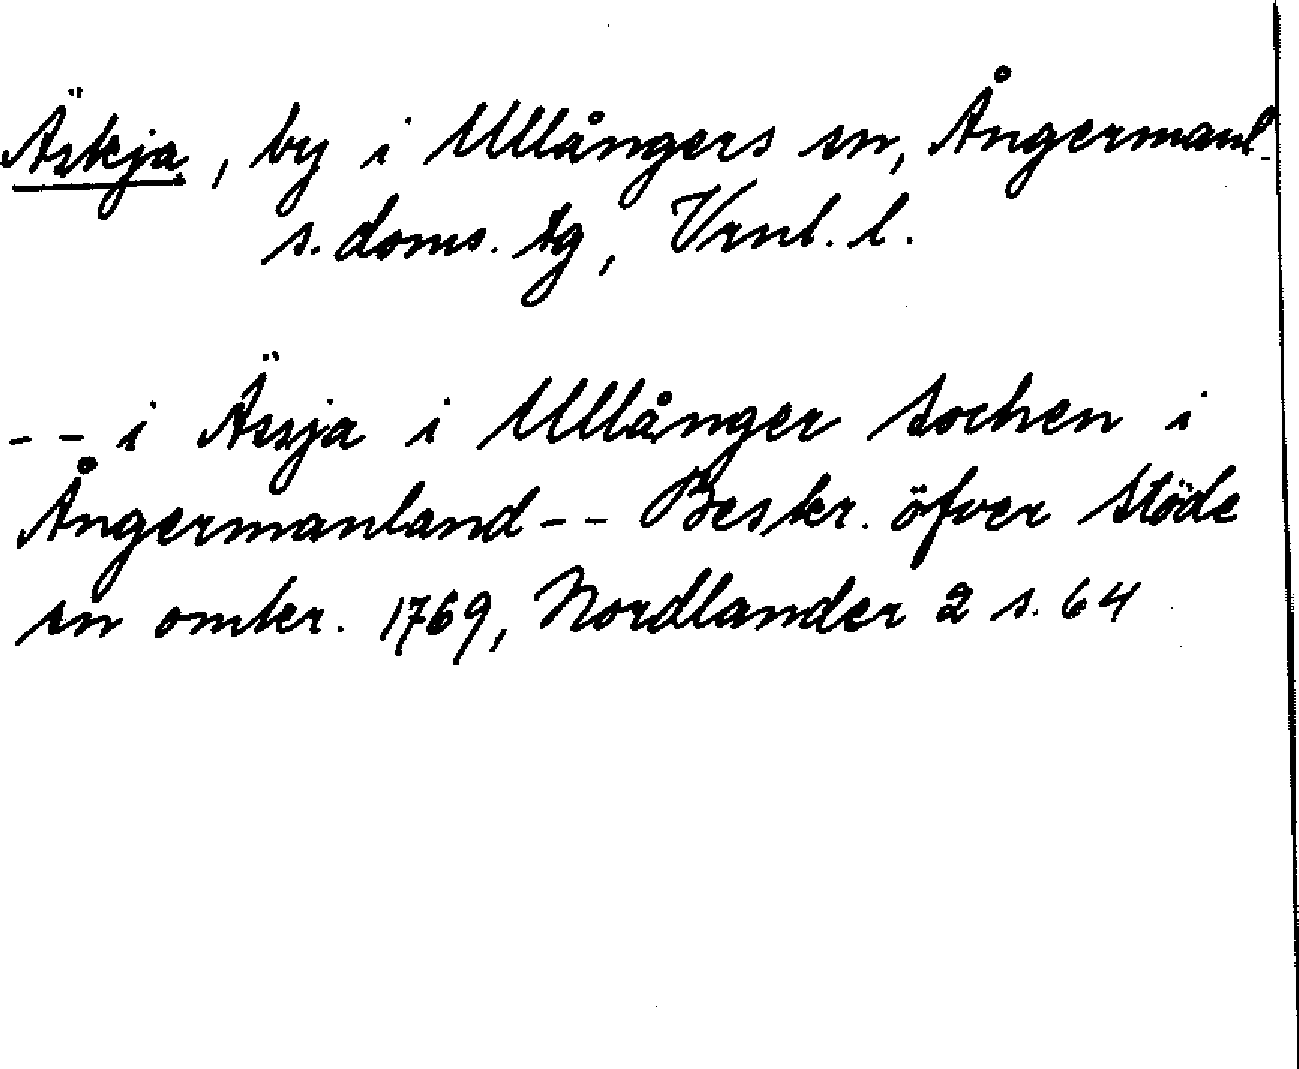 Äskja, by i Ullångers sn, Ångermanl.
s. doms. tg, Vrnl. l.
-- i Ässja i Ullånger Sochen i
Ångermanland -- Beskr. öfver Stöde
sn omkr. 1769, Nordlander 2 s. 64